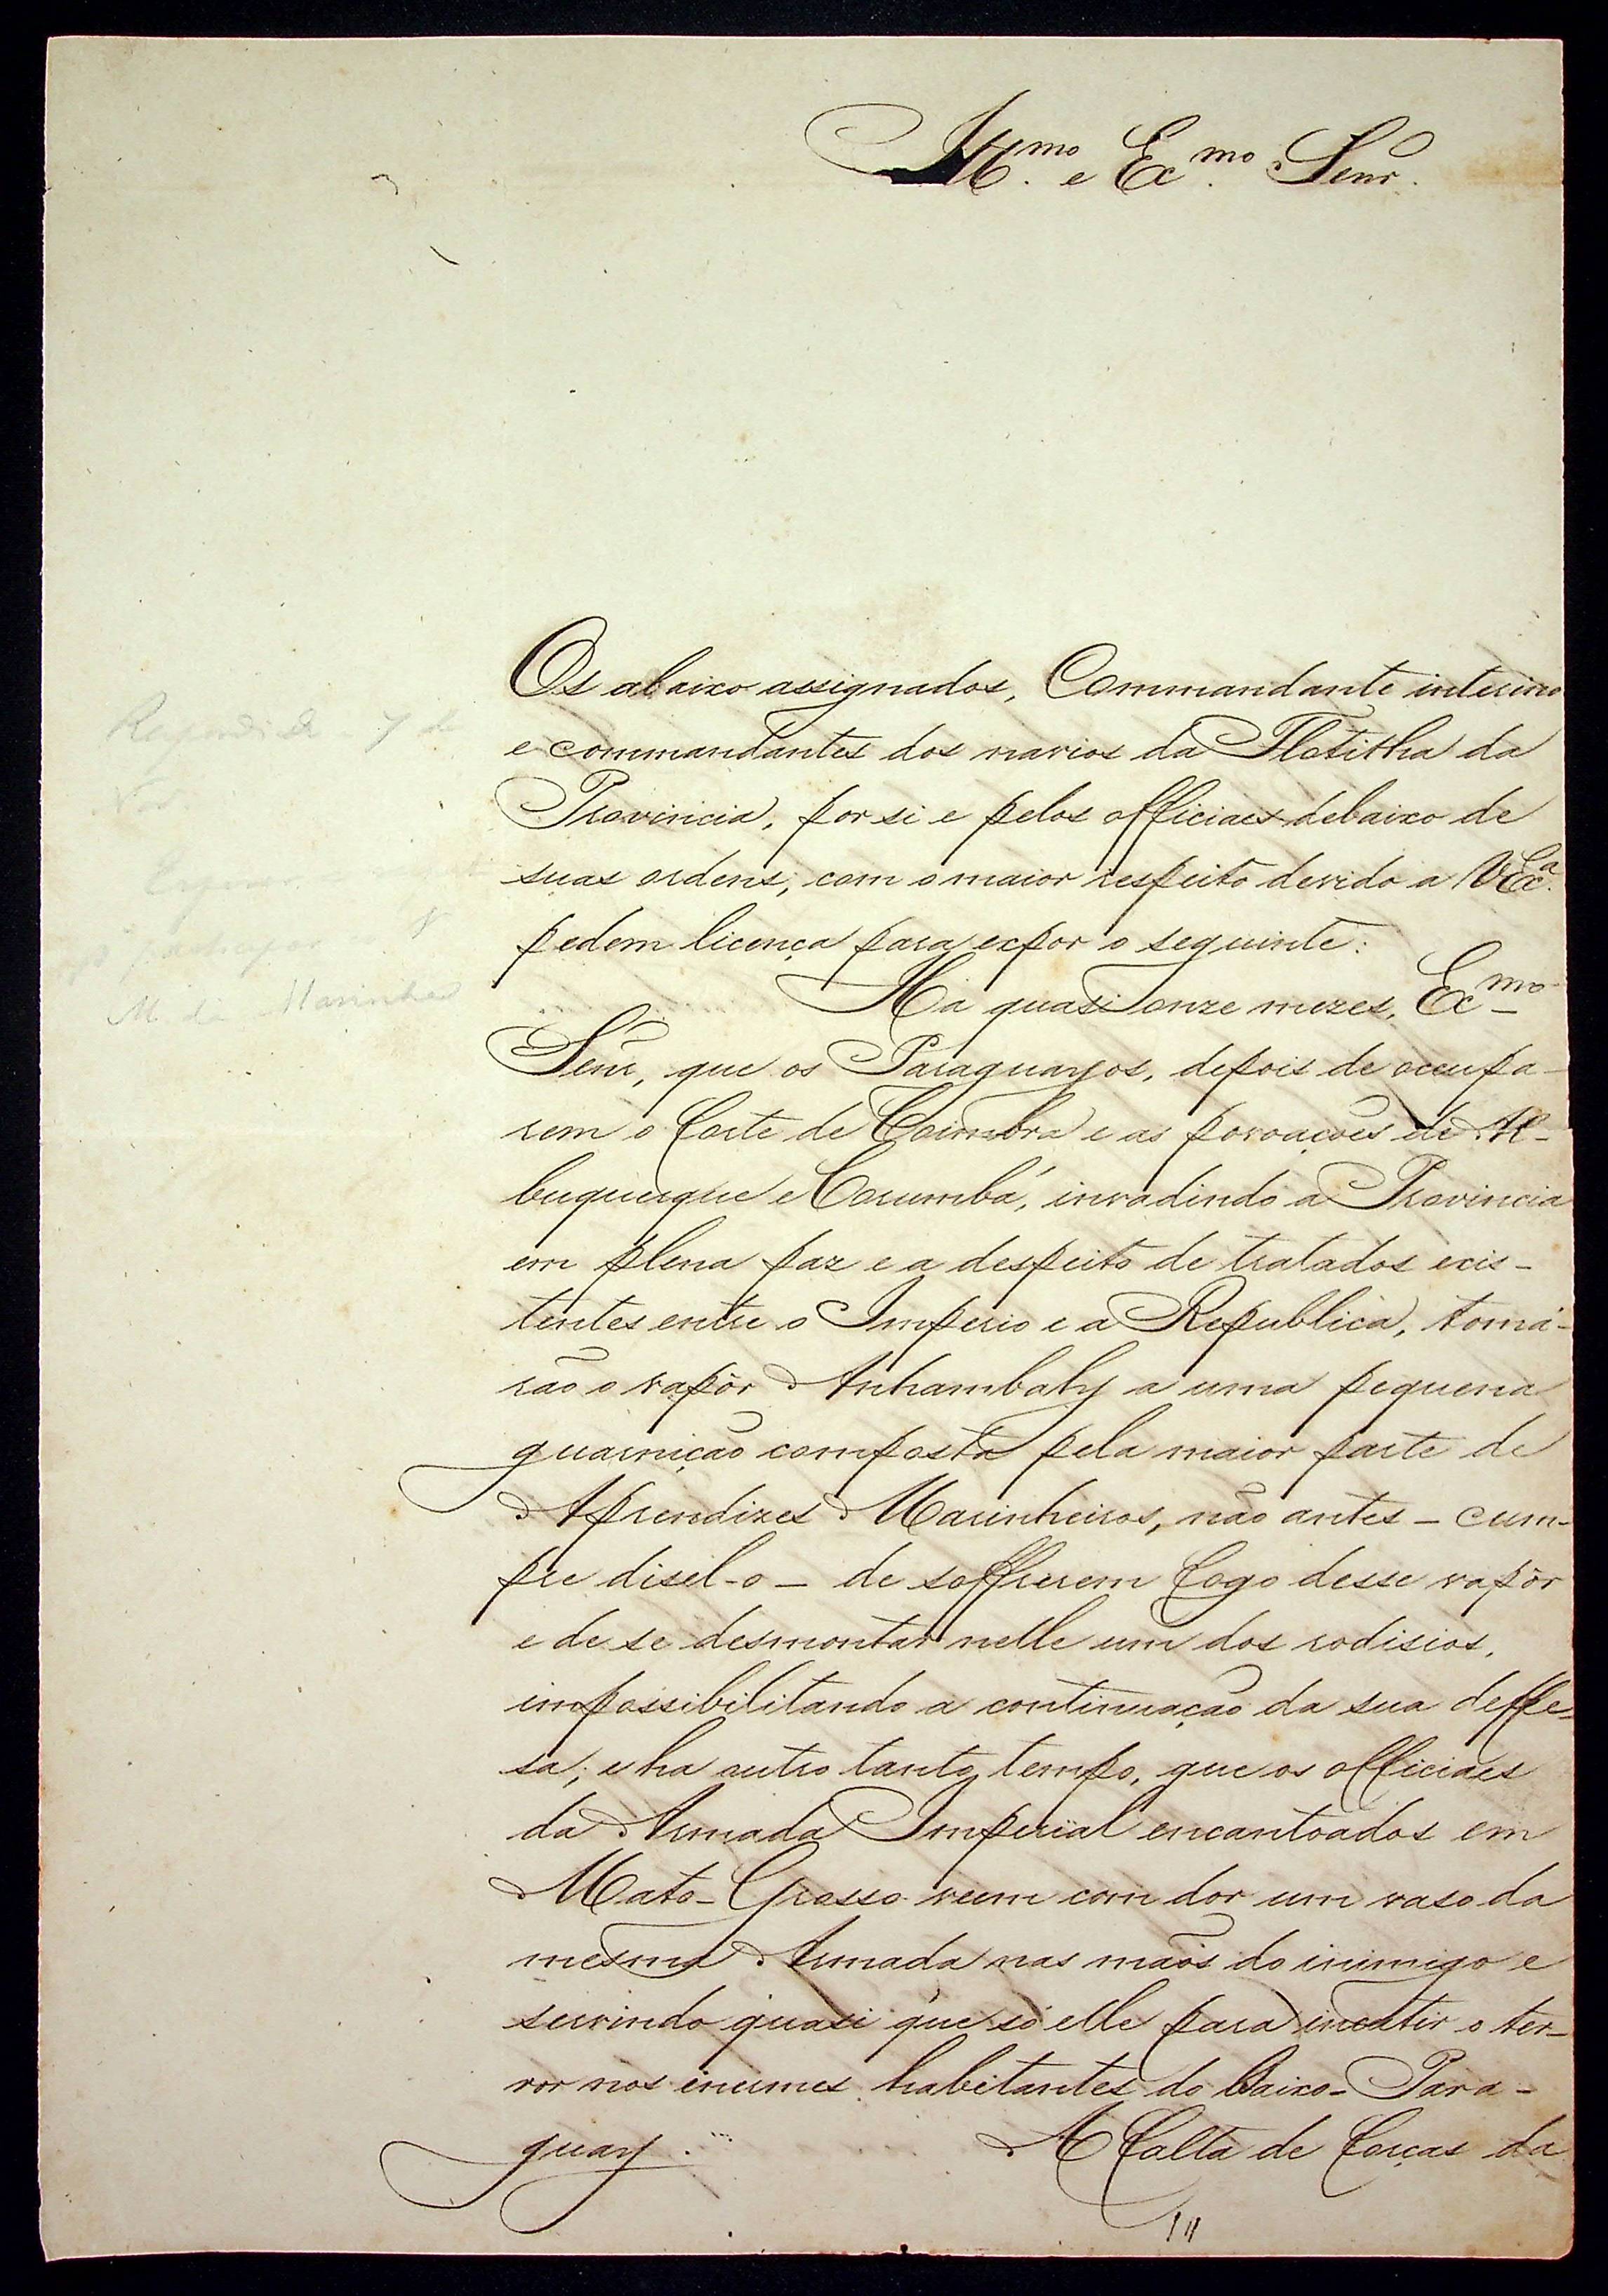 Illmo. e Exmo. Senr.
Os abaixo assignados, Commandante interino
e commandantes dos navios da Flotilha da
Provincia, por si e pelos officiaes debaixo de
suas ordens, com o maior respeito devido a V Exa.
pedem licença para expor o seguinte:
Ha quasi onze mezes, Exmo
Senr, que os Paraguayos, depois de occupa-
rem o Forte de Coimbra e as povoações de Al-
buquerque e Corumbá, invadindo a Provincia
em plena paz e a despeito de tratados exis-
tentes entre o Imperio e a Republica, tomá-
rão o vapôr Anhambahy a uma pequena
guarnição composta pela maior parte de
Aprendizes Marinheiros, não antes - cum-
pre disel-o - de soffrerem fogo desse vapôr
e de se desmontar nelle um dos rodisios,
impossibilitando a continuação da sua deffe-
sa; e ha outro tanto tempo, que os officiaes
da Armada Imperial encantoados em
Mato-Grosso veem com dor um vaso da
mesma Armada nas mãos do inimigo e
servindo quasi que só elle para incutir o ter-
ror nos inermes habitantes do Baixo-Para-
guay.
A falta de forças da
Marinha